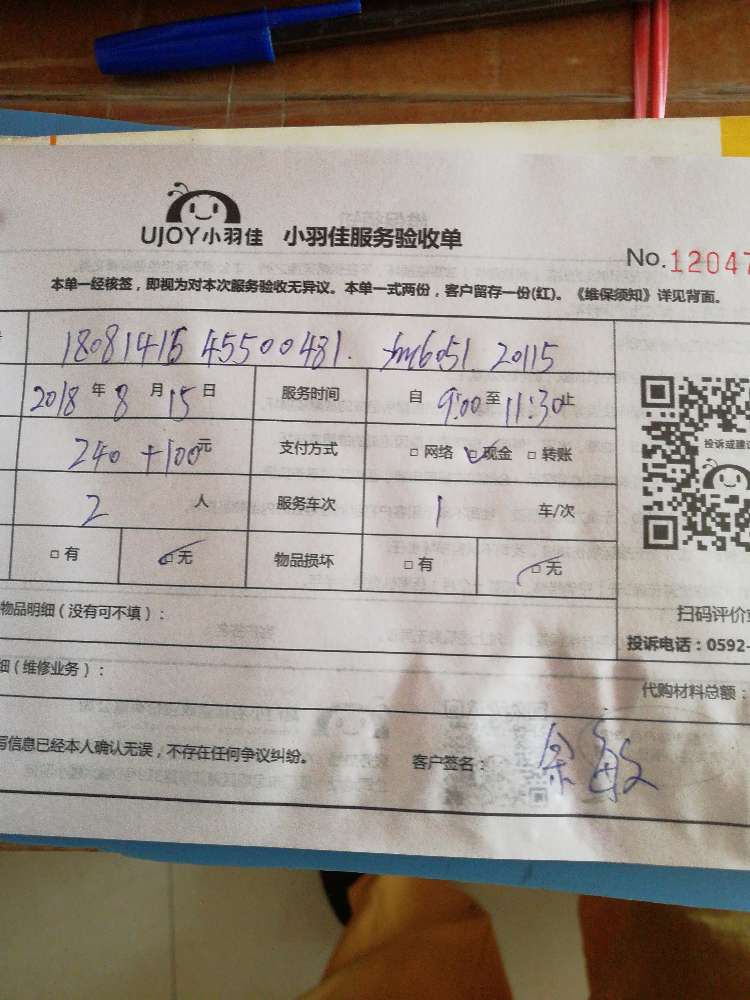 UJOY小羽佳 小羽佳服务验收单
No.12047
本单一经核签，即视为对本次服务验收无异议。本单一式两份，客户留存一份(红)。《维保须知》详见背面。
1808141545500481. xm6051 20115
2018年8月15日 服务时间 自9:00至11:30止
240+100元 支付方式 □网络 □现金 □转账
投诉或建议
2人 服务车次 1车/次
□有 □无 物品损坏 □有 □无
物品明细（没有可不填）：
扫码评价
投诉电话：0592-
细（维修业务）：
代购材料总额：
写信息已经本人确认无误，不存在任何争议纠纷。 客户签名：余敏